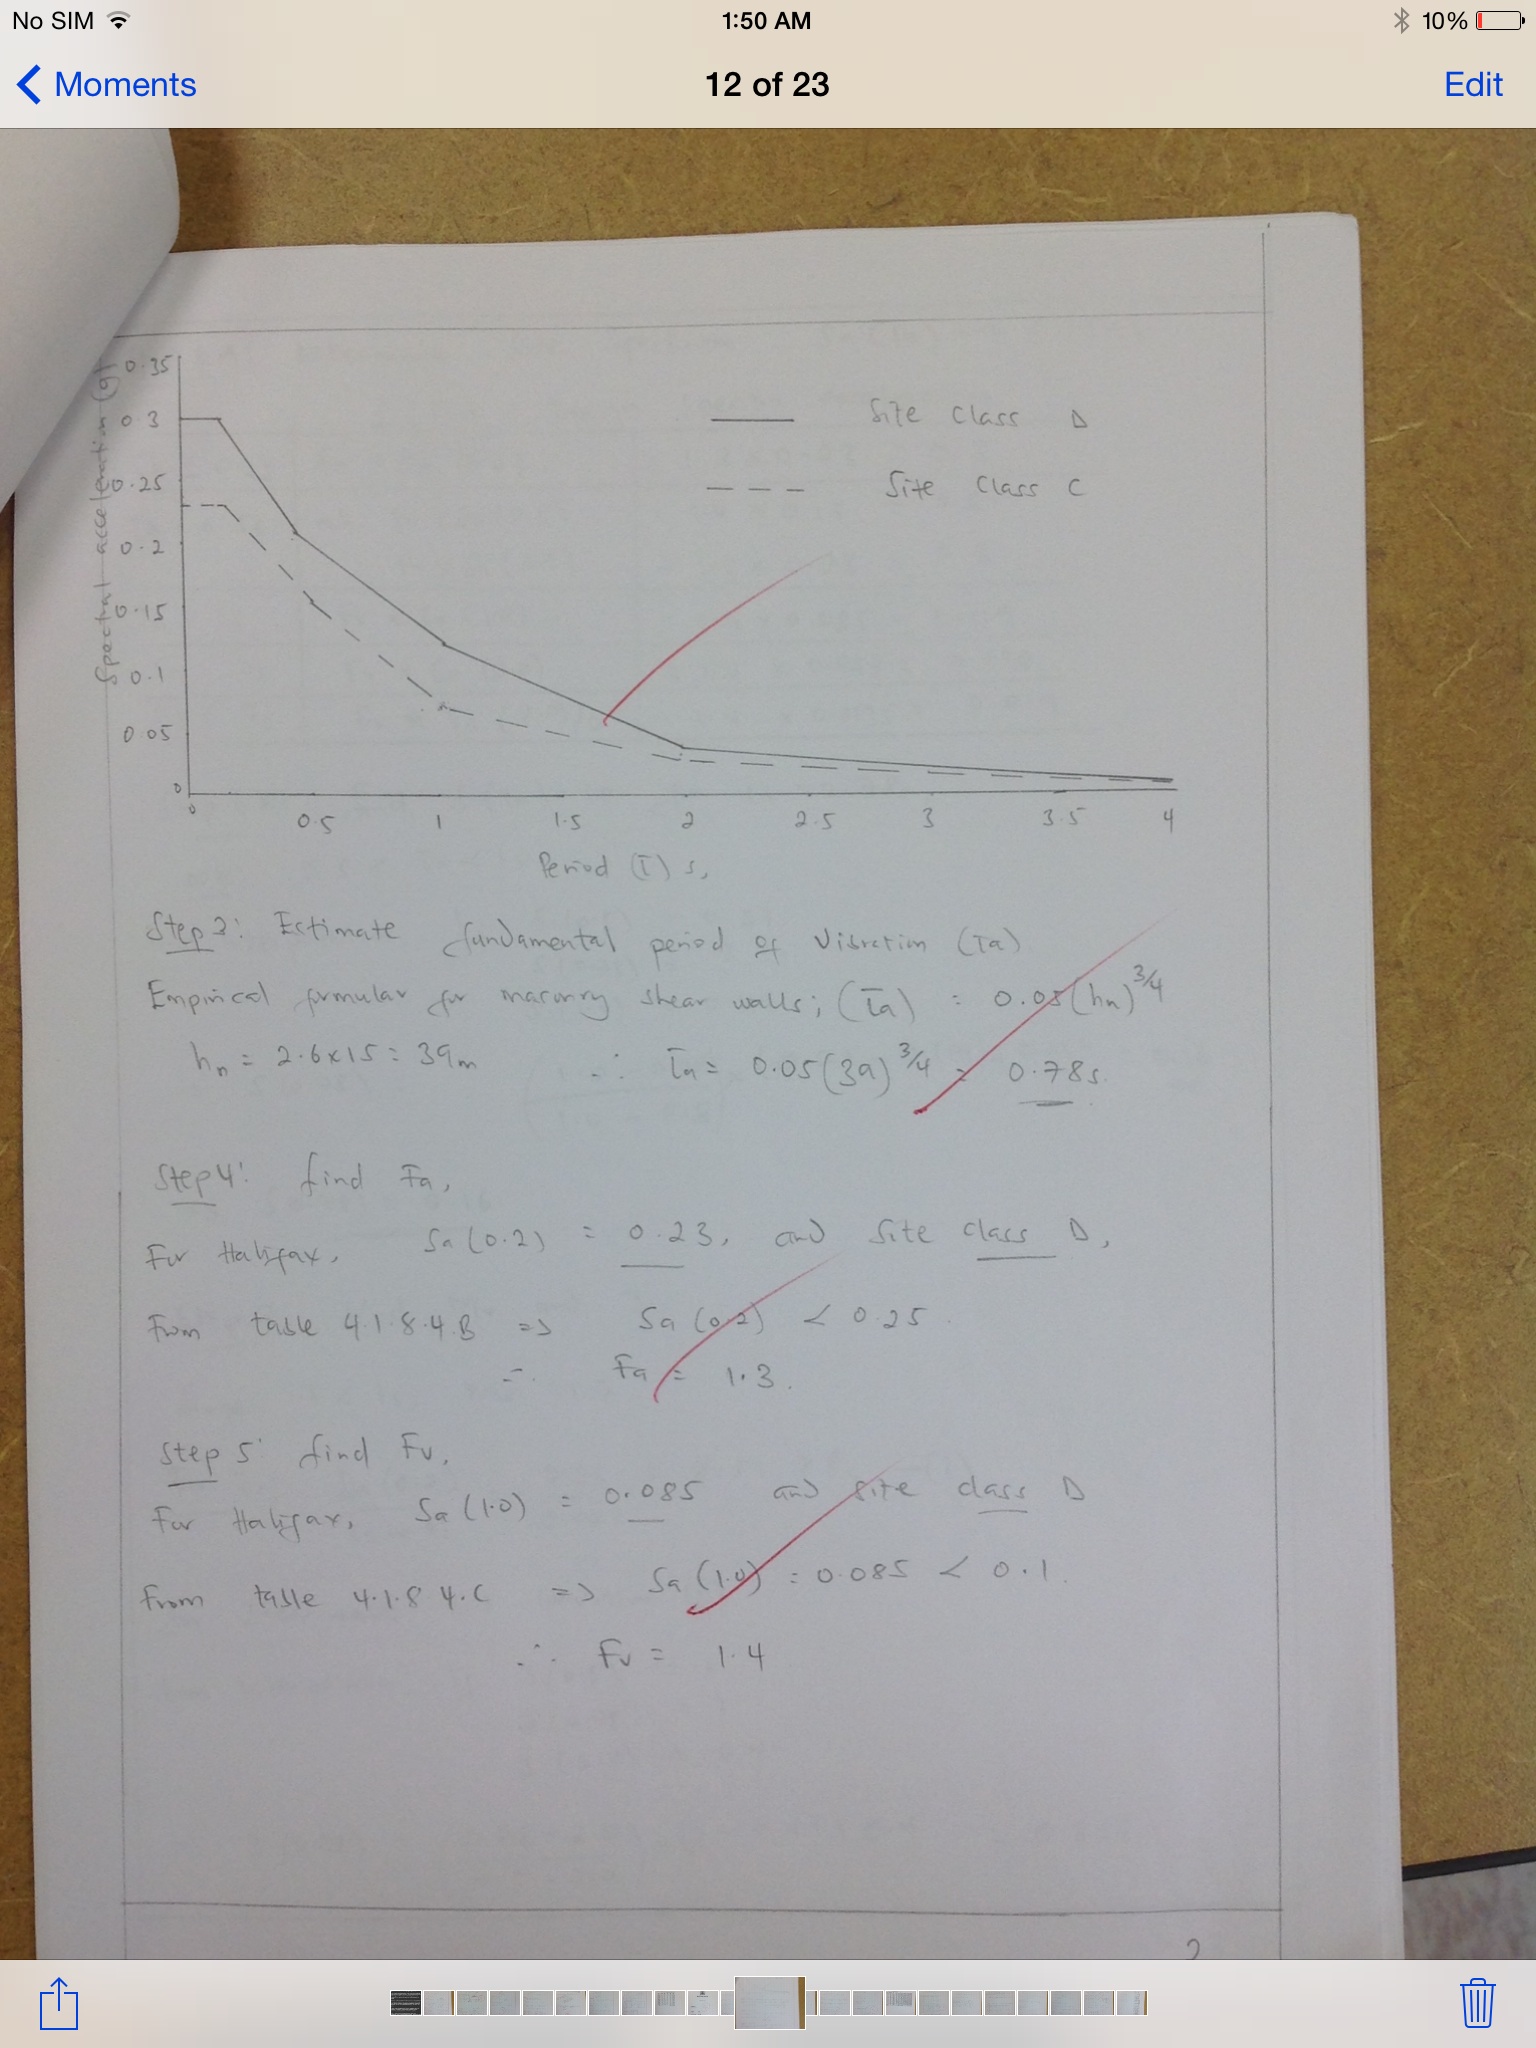 No SIM 1:50 AM 10%
Moments 12 of 23 Edit
Spectral acceleration (g)
0.35
0.3
0.25
0.2
0.15
0.1
0.05
0
Site Class D
Site Class C
0 0.5 1 1.5 2 2.5 3 3.5 4
Period (T) s,
Step 3: Estimate fundamental period of Vibration (Ta)
Empirical formular for masonry shear walls; (Ta) = 0.05(hn)^3/4
hn = 2.6x15 = 39m ∴ Ta = 0.05(39)^3/4 = 0.78s.
Step 4: find Fa,
For Halifax, Sa(0.2) = 0.23, and Site class D,
From table 4.1.8.4.B => Sa(0.2) < 0.25.
∴ Fa = 1.3.
Step 5: find Fv,
For Halifax, Sa(1.0) = 0.085 and Site class D
From table 4.1.8.4.C => Sa(1.0) = 0.085 < 0.1.
∴ Fv = 1.4
2